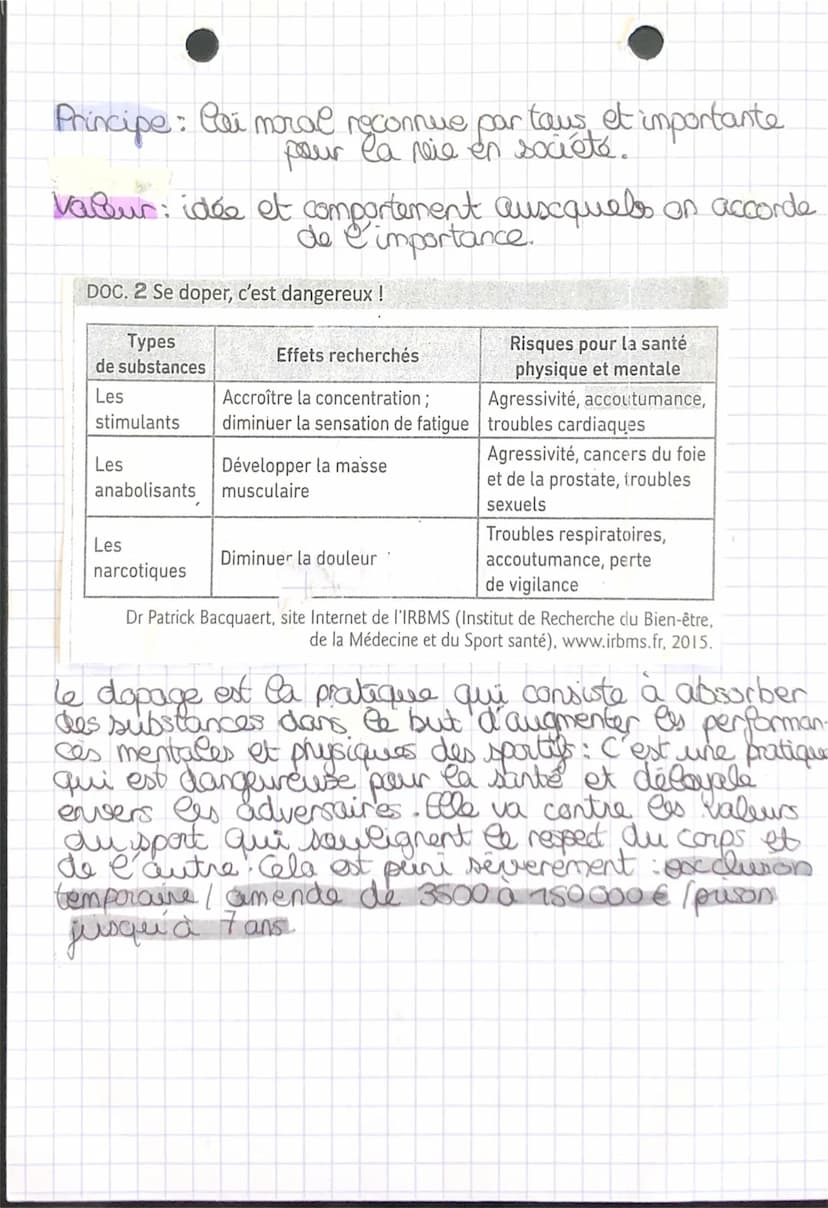 Principe : loi moral reconnue par tous et importante
pour la vie en société.
Valeur : idée et comportement auxquels on accorde
de l'importance.
DOC. 2 Se doper, c'est dangereux !
Types
de substances
Effets recherchés
Risques pour la santé
physique et mentale
Les
stimulants
Accroître la concentration ;
diminuer la sensation de fatigue
Agressivité, accoutumance,
troubles cardiaques
Les
anabolisants
Développer la masse
musculaire
Agressivité, cancers du foie
et de la prostate, troubles
sexuels
Les
narcotiques
Diminuer la douleur
Troubles respiratoires,
accoutumance, perte
de vigilance
Dr Patrick Bacquaert, site Internet de l'IRBMS (Institut de Recherche du Bien-être,
de la Médecine et du Sport santé), www.irbms.fr, 2015.
Le dopage est la pratique qui consiste à absorber
des substances dans le but d'augmenter les performan-
ces mentales et physiques des sportifs : C'est une pratique
qui est dangeureuse pour la santé et déloyale
envers les adversaires. Elle va contre les valeurs
du sport qui soulignent le respect du corps et
de l'autre. Cela est puni sévèrement : exclusion
temporaire / amende de 3500 à 150 000 € / prison
jusqu'à 7 ans